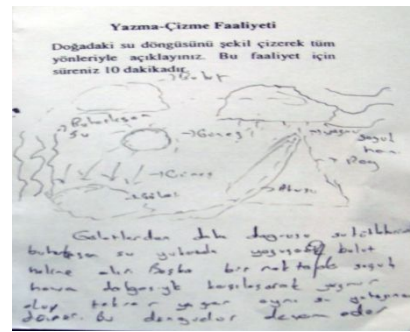 Yazma-Çizme Faaliyeti
Doğadaki su döngüsünü şekil çizerek tüm
yönleriyle açıklayınız. Bu faaliyet için
süreniz 10 dakikadır.
Bulut
Buharlaşan
su
Güneş
yağmur
soğuk
hava
Dağ
Güneş
Göller
Akarsu
Göletlerden daha doğrusu su
buharlaşan su yukarıda yoğuşup bulut
haline alır. Başka bir noktada soğuk
hava dalgasıyla karşılaşarak yağmur
olup tekrar yağar aynı su
döner. Bu döngüler devam eder